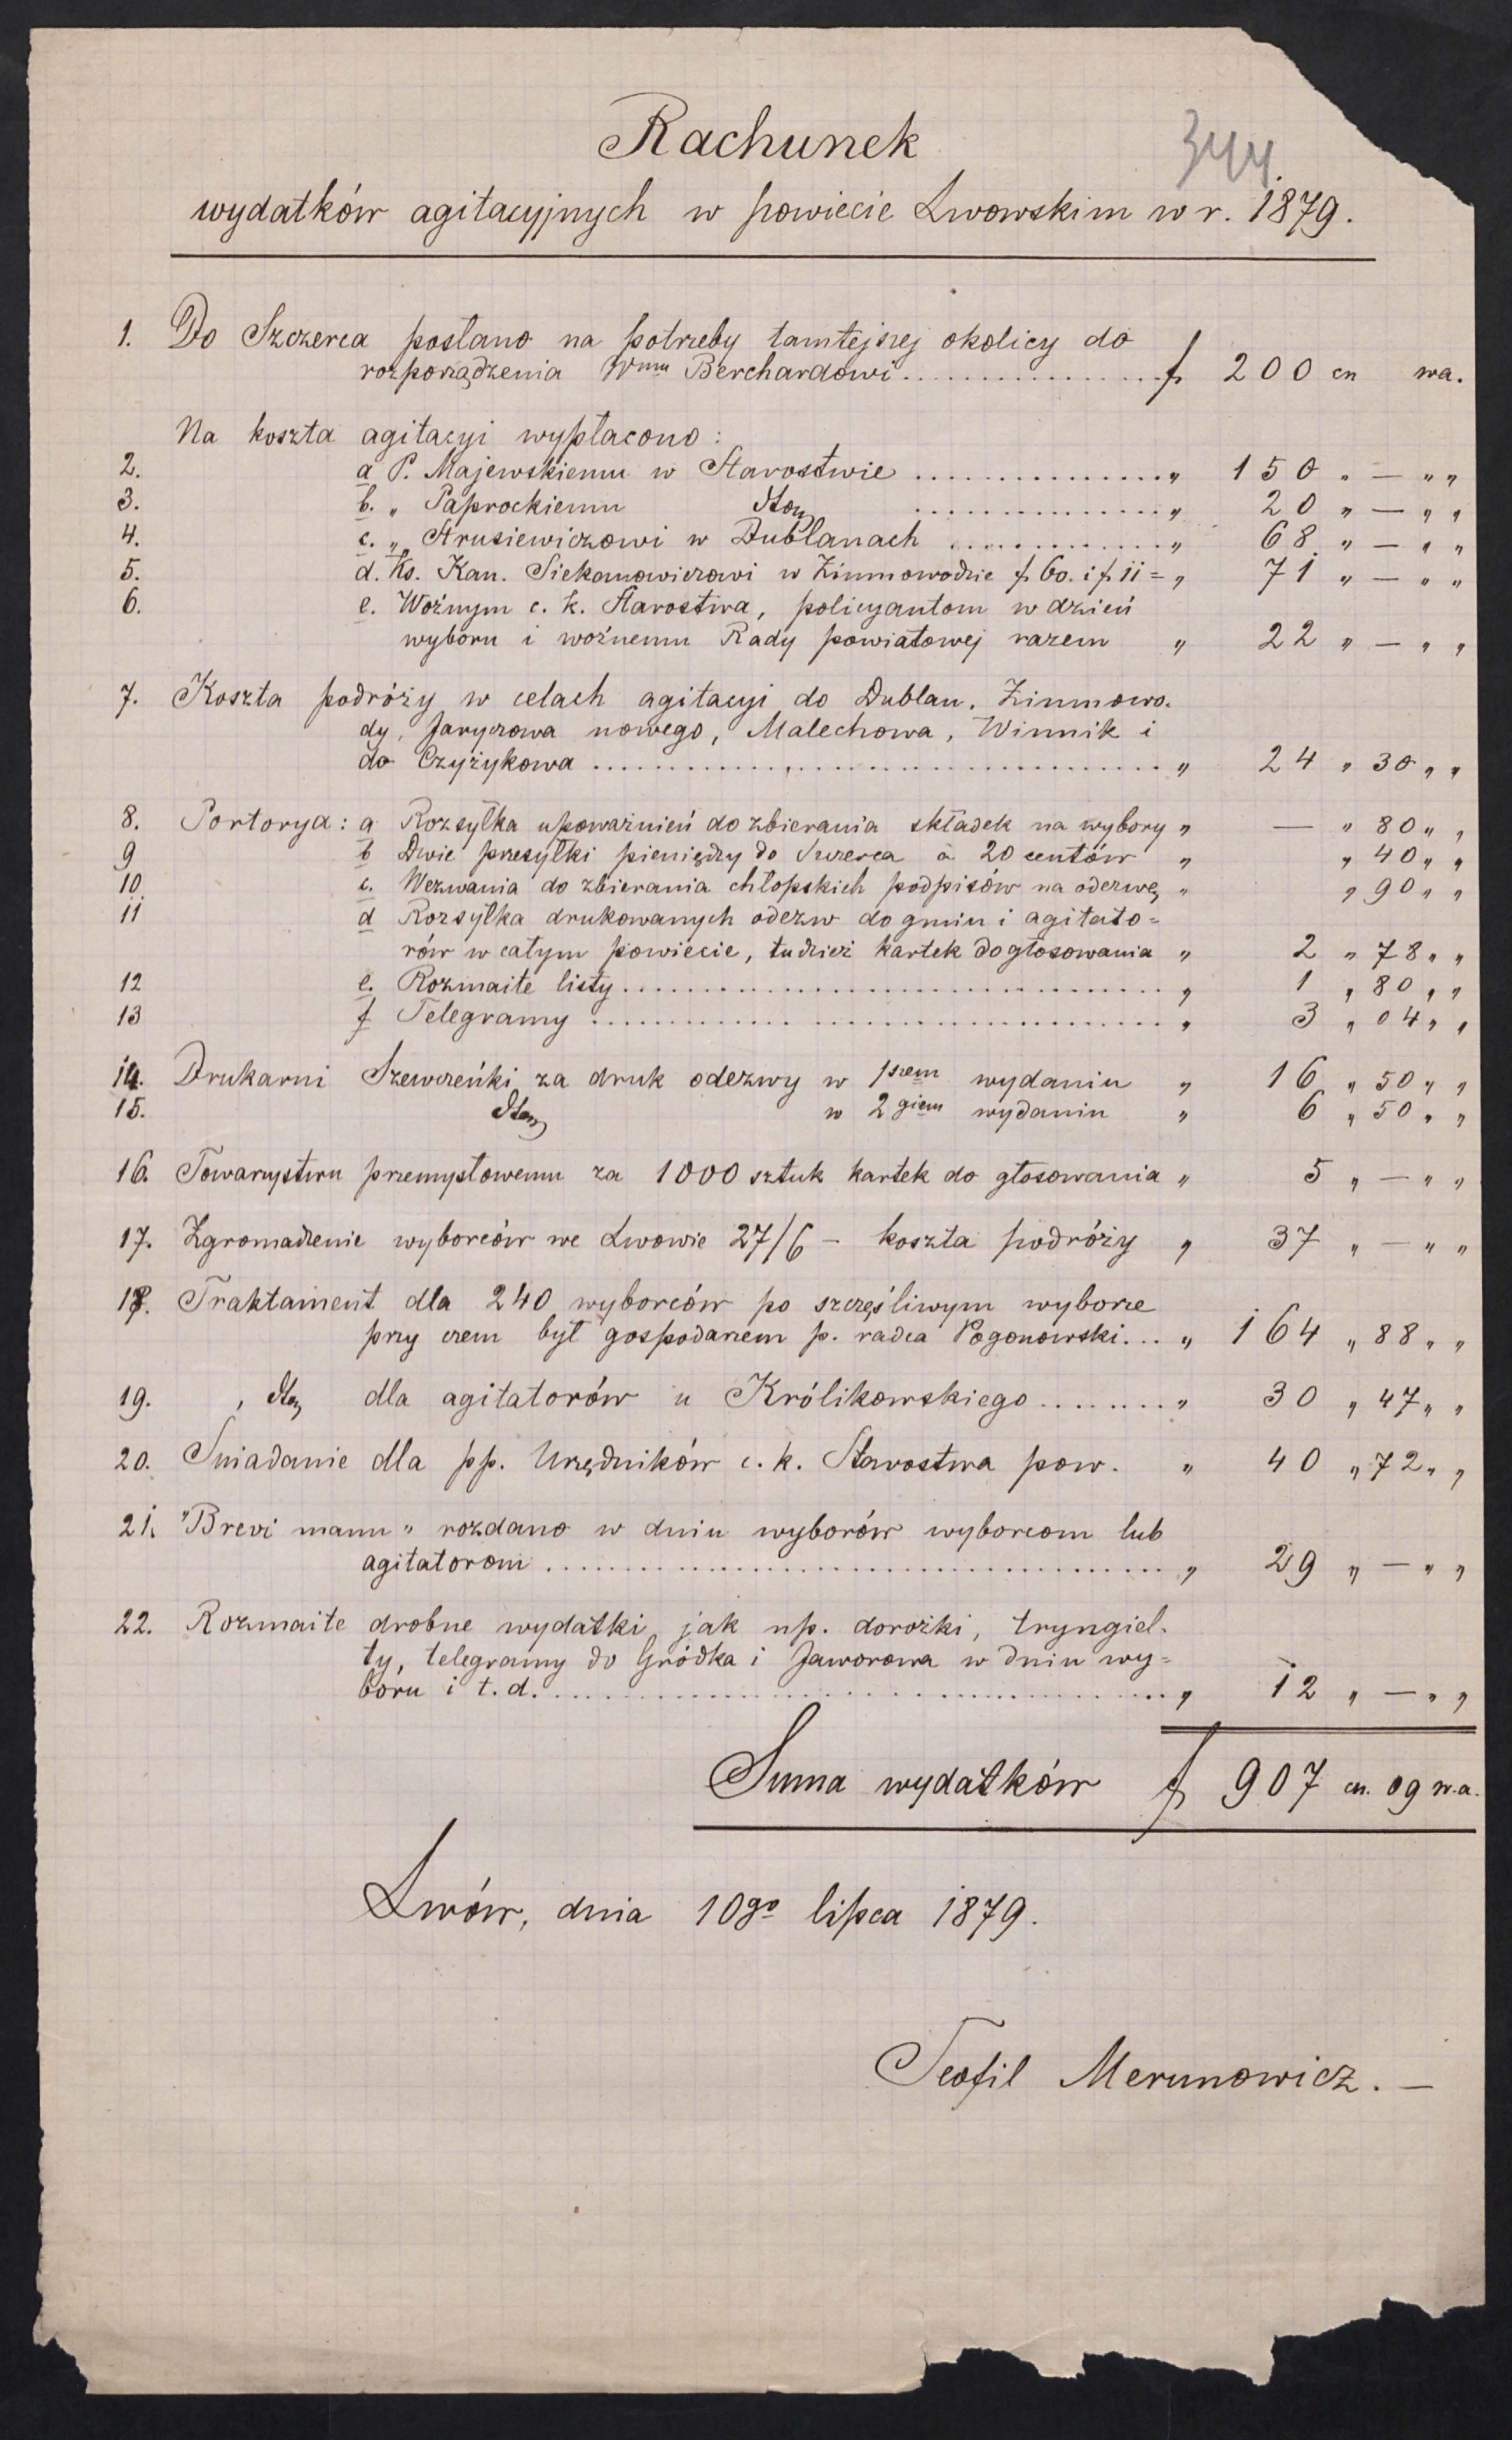 344.
Rachunek
wydatków agitacyjnych w powiecie Lwowskim w r. 1879.
1. Do Szczerca posłano na potrzeby tamtejszej okolicy do
rozporządzenia Wmu Berchardowi ................ f 200 cn wa.
Na koszta agitacyi wypłacono:
2. a P. Majewskiemu w Starostwie ................ " 150 " — " "
3. b. " Paprockiemu dto ................ " 20 " — " "
4. c. " Strusiewiczowi w Dublanach ............. " 68 " — " "
5. d. Ks. Kan. Siekanowiczowi w Zimnowodzie f 60. i f 11 = " 71 " — " "
6. e. Woźnym c. k. Starostwa, policyantom w dzień
wyboru i woźnemu Rady powiatowej razem " 22 " — " "
7. Koszta podróży w celach agitacyi do Dublan, Zimnowo.
dy, Jaryczowa nowego, Malechowa, Winnik i
do Czyżykowa ................................ " 24 " 30 " "
8. Portorya: a Rozsyłka upoważnień do zbierania składek na wybory " — " 80 " "
9 b Dwie przesyłki pieniędzy do Szczerca à 20 centów " " 40 " "
10. c. Wezwania do zbierania chłopskich podpisów na odezwę " " 90 " "
11 d Rozsyłka drukowanych odezw do gmin i agitato=
rów w całym powiecie, tudzież kartek do głosowania " 2 " 78 " "
12 e. Rozmaite listy ................................ " 1 " 80 " "
13 f Telegramy ................................ " 3 " 04 " "
14. Drukarni Szewczeńki za druk odezwy w 1szem wydaniu " 16 " 50 " "
15. dto w 2giem wydaniu " 6 " 50 " "
16. Towarzystwu przemysłowemu za 1000 sztuk kartek do głosowania " 5 " — " "
17. Zgromadzenie wyborców we Lwowie 27/6 — koszta podróży " 37 " — " "
18. Traktament dla 240 wyborców po szczęśliwym wyborze
przy czem był gospodarzem p. radca Pogonowski... " 164 " 88 " "
19. " dto dla agitatorów u Królikowskiego ........ " 30 " 47 " "
20. Śniadanie dla pp. Urzędników c. k. Starostwa pow. " 40 " 72 " "
21. "Brevi manu" rozdano w dniu wyborów wyborcom lub
agitatorom ................................ " 29 " — " "
22. Rozmaite drobne wydatki jak np. dorożki, tryngiel.
ty, telegramy do Gródka i Jaworowa w dniu wy=
boru i t. d. ................................ " 12 " — " "
Suma wydatków f 907 cn. 09 w.a.
Lwów, dnia 10go lipca 1879.
Teofil Merunowicz. —